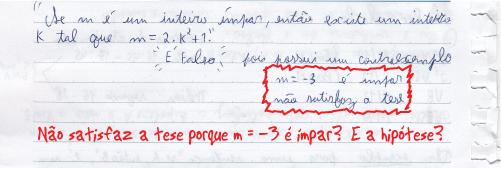 "Se m é um inteiro ímpar, então existe um inteiro
K tal que m = 2.K²+1."
"É Falso", pois possui um contraexemplo
m = -3 é ímpar
não satisfaz a tese
Não satisfaz a tese porque m = -3 é ímpar? E a hipótese?